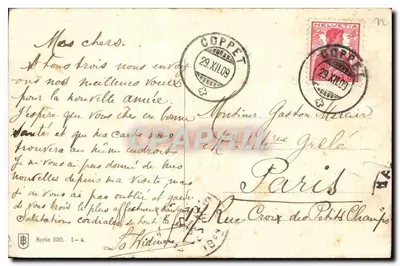 Mes chers.
A tous trois nous envoy
ons nos meilleurs voeux
pour la nouvelle année
J'espère que vous êtes en bonne
santé et que ma carte vous
trouvera au même endroit
Je ne vous ai pas donné de mes
nouvelles depuis ma visite mais
je ne vous ai pas oublié et garde
de vous trois le plus affectueux
Salutations cordiales de toute
COPPET
29.XII.09
HELVETIA
COPPET
29.XII.09
Monsieur Gaston
rue
Paris
Rue Croix des Petits Champs
Serie 500. 1-4.